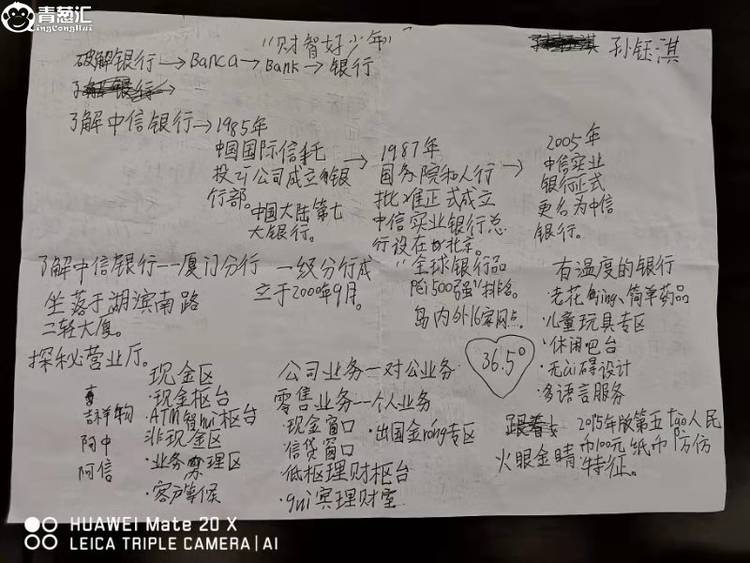 青葱汇
QingCongHui
"财智好少年"
孙钰淇
破解银行→Banca→Bank→银行
了解银行→
了解中信银行→1985年
中国国际信托
投资公司成立银
行部。
中国大陆第七
大银行。
→1987年
国务院和人行
批准正式成立
中信实业银行总
行设在北京。
→2005年
中信实业
银行正式
更名为中信
银行。
了解中信银行——厦门分行
坐落于湖滨南路
二轻大厦。
一级分行成
立于2000年9月。
"全球银行品
pái500强"排名。
岛内外16家网点。
有温度的银行
·老花jìng、简单药品
·儿童玩具专区
·休闲吧台
·无ài碍设计
·多语言服务
36.5°
探秘营业厅。
吉祥物
阿中
阿信
现金区
·现金柜台
·ATM智huì柜台
非现金区
·业务办理区
·客户等候
公司业务—对公业务
零售业务—个人业务
·现金窗口
·信贷窗口
·低柜理财柜台
·guì宾理财室
·出国金róng专区
火眼金睛
2015年版第五tào人民
币100元纸币防伪
特征。
HUAWEI Mate 20 X
LEICA TRIPLE CAMERA | AI